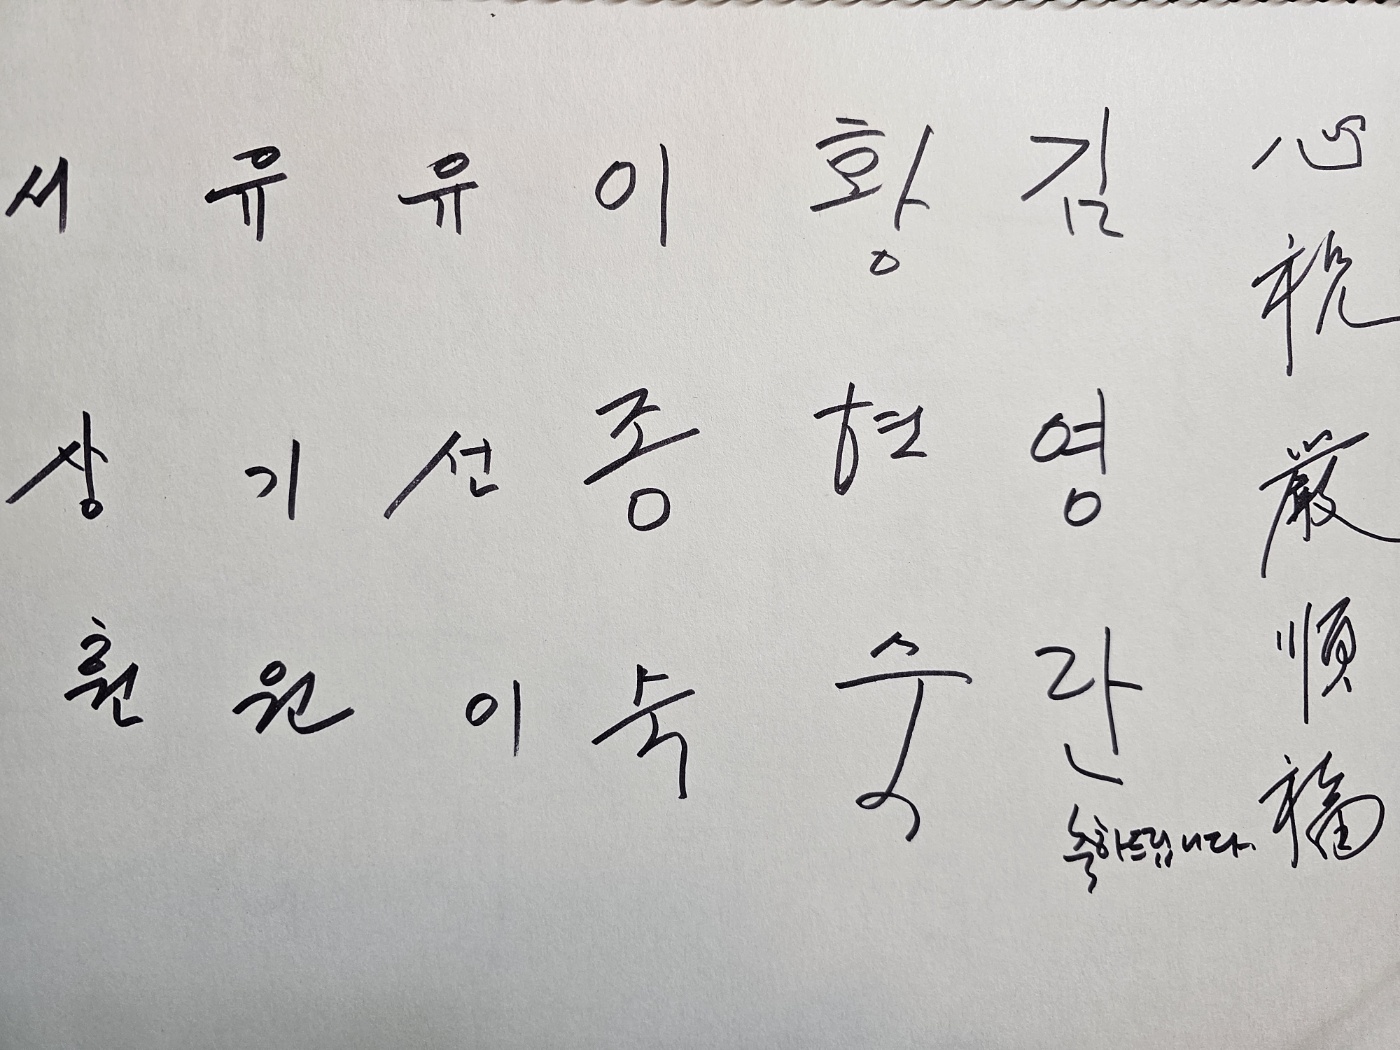 心祝嚴順福
축하드립니다.
김영란
황현숙
이종숙
유선이
유기원
서상훤